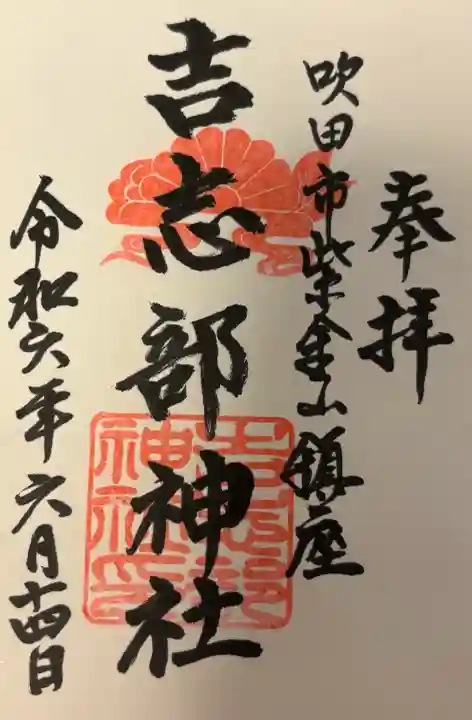 奉拝
吹田市紫金山鎮座
吉志部神社
吉志部
神社印
令和六年六月十四日